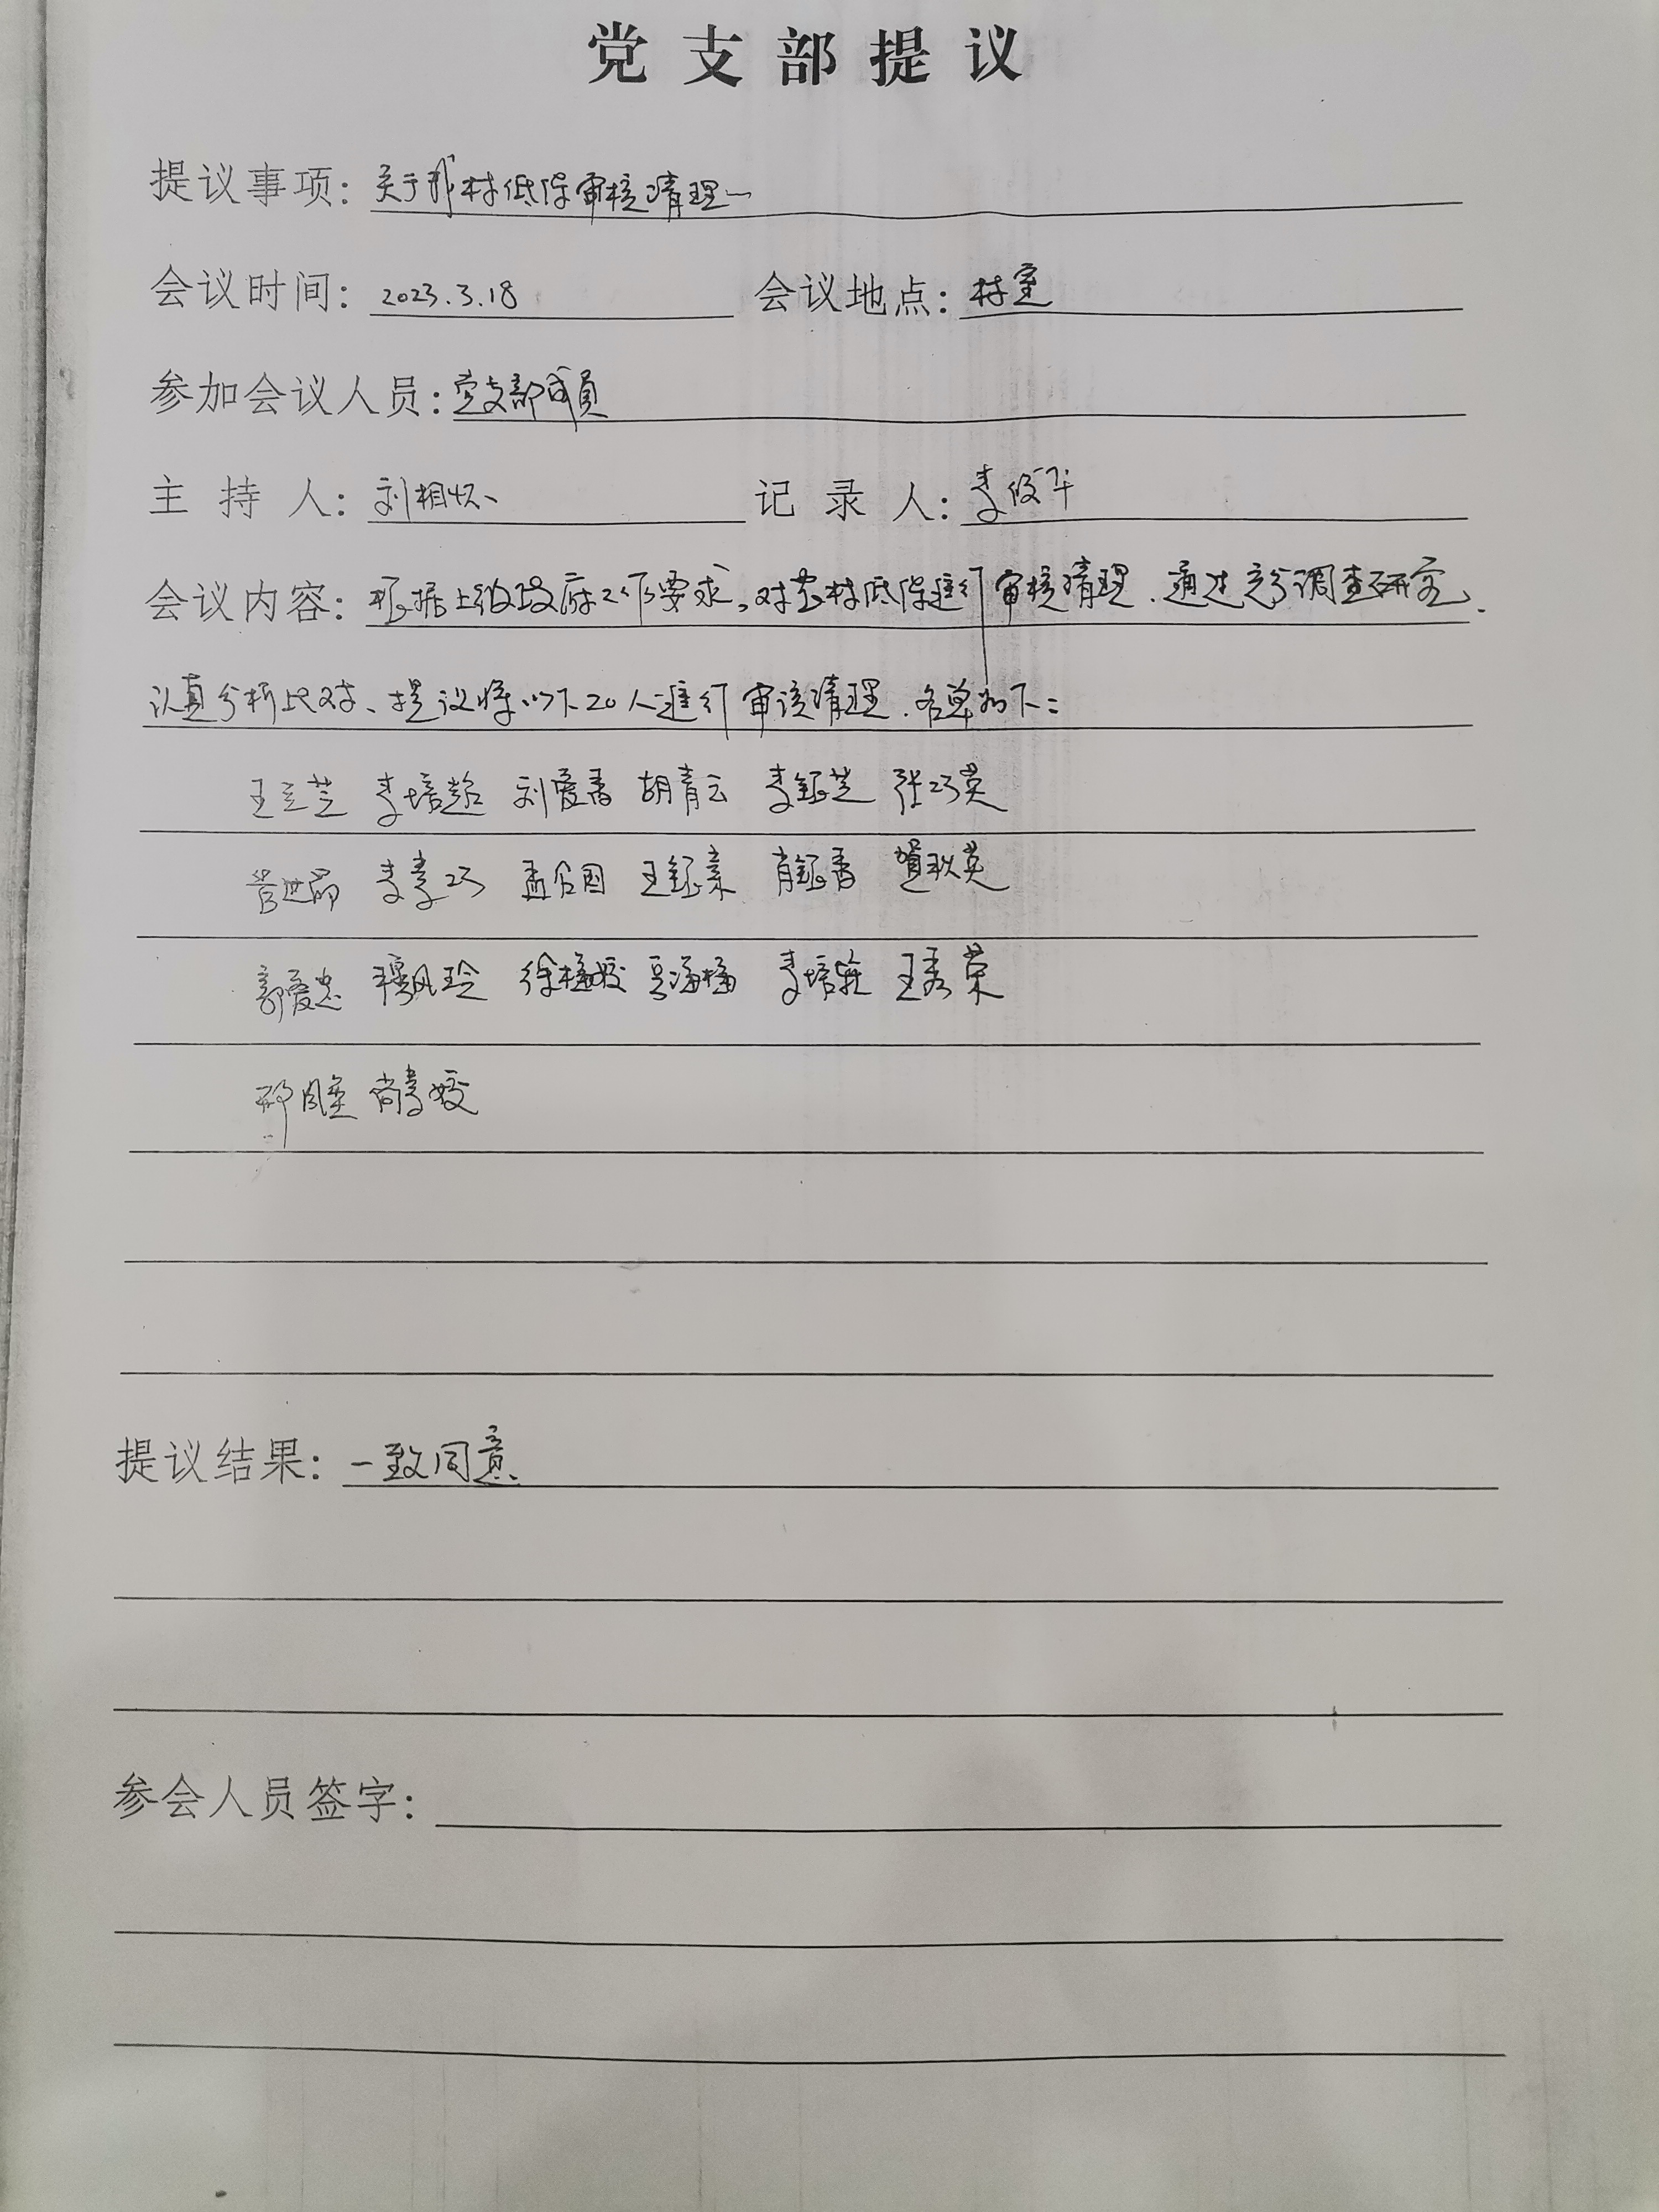 党支部提议
提议事项：关于我村低保审核清理
会议时间：2023.3.18 会议地点：村室
参加会议人员：党支部成员
主持人：刘相怀 记录人：李俊华
会议内容：根据上级政府工作要求，对农村低保进行审核清理，通过充分调查研究，
认真分析比对、提议将以下20人进行审核清理，名单如下：
王兰芝 李培超 刘爱香 胡青云 李银芝 张巧英
李素巧 王银素 肖银香 贺秋英
郭爱忠 穆凤玲 徐梅姣 吴海梅 李培旌 王秀荣
尚素姣
提议结果：一致同意
参会人员签字：